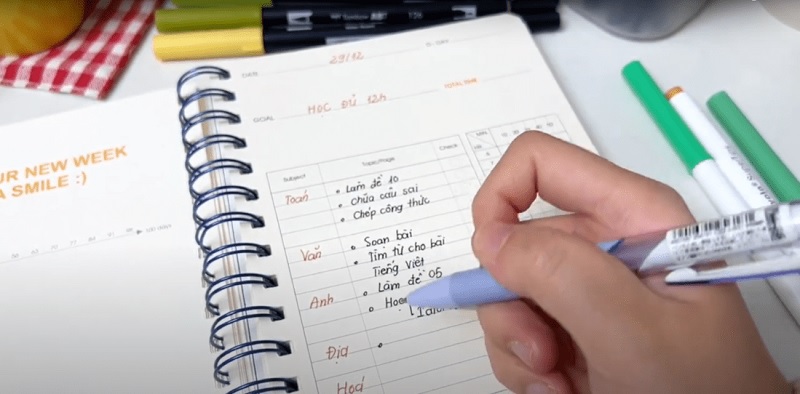 UR NEW WEEK
A SMILE :)
DATE 29/12
D-DAY
GOAL HỌC ĐỦ 12h
TOTAL TIME
Subject Topic/Page Check
Toán • Làm đề 10
• Chữa câu sai
• Chép công thức
Văn • Soạn bài
• Tìm từ cho bài
Tiếng Việt
Anh • Làm đề 05
Địa •
Hoá